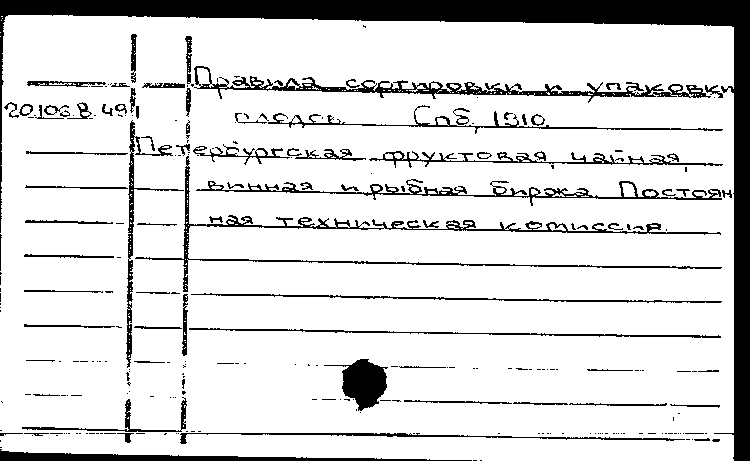 Правила сортировки и упаковки
20.106.8.491
плодов. Спб, 1910.
Петербургская фруктовая, чайная,
винная и рыбная биржа. Постоян-
ная техническая комиссия.